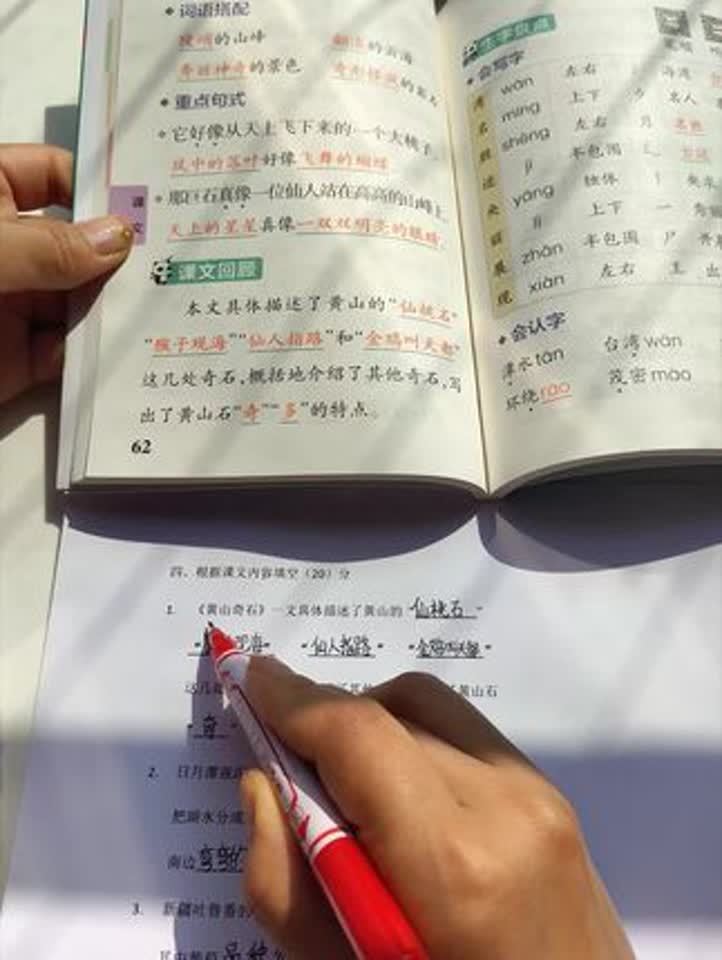 词语搭配
陡峭的山峰 翻滚的云海
奇丽神奇的景色 奇形怪状的
重点句式
它好像从天上飞下来的一个大桃子,
风中的落叶好像飞舞的蝴蝶
那巨石真像一位仙人站在高高的山峰上
天上的星星真像一双双明亮的眼睛
课文
课文回顾
本文具体描述了黄山的“仙桃石”
“猴子观海”“仙人指路”和“金鸡叫天都”
这几处奇石,概括地介绍了其他奇石,写
出了黄山石“奇”“多”的特点。
62
会写字
湾 wān 左右 氵 海湾
名 míng 上下 夕 名人
胜 shèng 左右 月 名胜
迹 jì 半包围 辶
央 yāng 独体
丽 lì 上下 一
展 zhǎn 半包围 尸
现 xiàn 左右 王
会认字
潭水 tán 台湾 wān
环绕 rào 茂密 mào
四、根据课文内容填空(20)分
1. 《黄山奇石》一文具体描述了黄山的“仙桃石”
观海” “仙人指路” “金鸡叫天都”
这几处 了黄山石
“奇”
2. 日月潭
把湖水分成
南边弯弯的
3. 新疆吐鲁番的